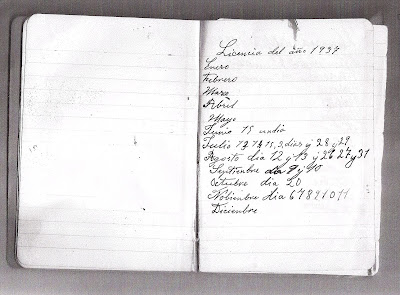 Licencia del año 1937
Enero
Febrero
Marzo
Abril
Mayo
Junio 15 un dia
Julio 13, 14, 15, 3 dias y 28 y 29
Agosto dia 12 y 13 y 26 27 y 31
Septiembre dia 9 y 10
Octubre dia 20
Nobienbre dia 6 7 8 9 10 11
Diciembre